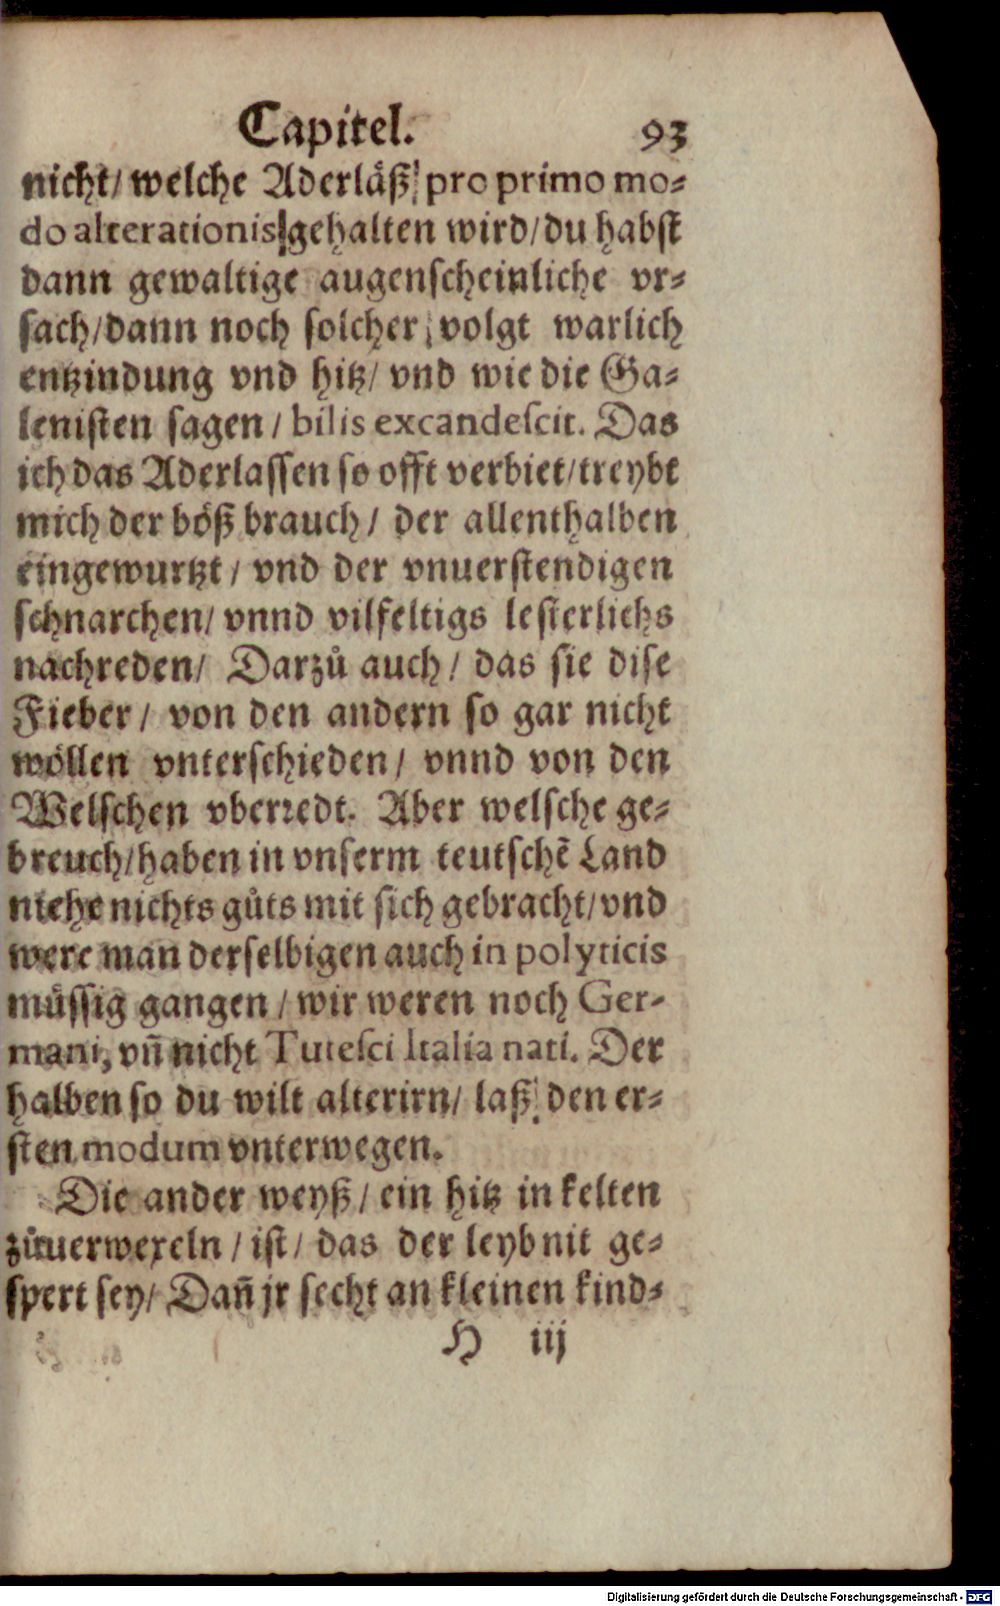 Capitel. 93
nicht/ welche Aderläß pro primo mo-
do alterationis gehalten wird/ du habst
dann gewaltige augenscheinliche vr-
sach/ dann noch solcher volgt warlich
entzindung vnd hitz/ vnd wie die Ga-
lenisten sagen/ bilis excandescit. Das
ich das Aderlassen so offt verbiet/ treybt
mich der böß brauch/ der allenthalben
eingewurtzt/ vnd der vnuerstendigen
schnarchen/ vnnd vilfeltigs lesterlichs
nachreden/ Darzů auch/ das sie dise
Fieber/ von den andern so gar nicht
wöllen vnterschieden/ vnnd von den
Welschen vberredt. Aber welsche ge-
breuch/ haben in vnserm teutschẽ Land
niehe nichts gůts mit sich gebracht/ vnd
were man derselbigen auch in polyticis
müssig gangen/ wir weren noch Ger-
mani, vñ nicht Tutesci Italia nati. Der
halben so du wilt alterirn/ laß den er-
sten modum vnterwegen.
Die ander weyß/ ein hitz in kelten
zůuerwexeln/ ist/ das der leyb nit ge-
spert sey/ Dañ jr secht an kleinen kind-
H iij
Digitalisierung gefördert durch die Deutsche Forschungsgemeinschaft - DFG